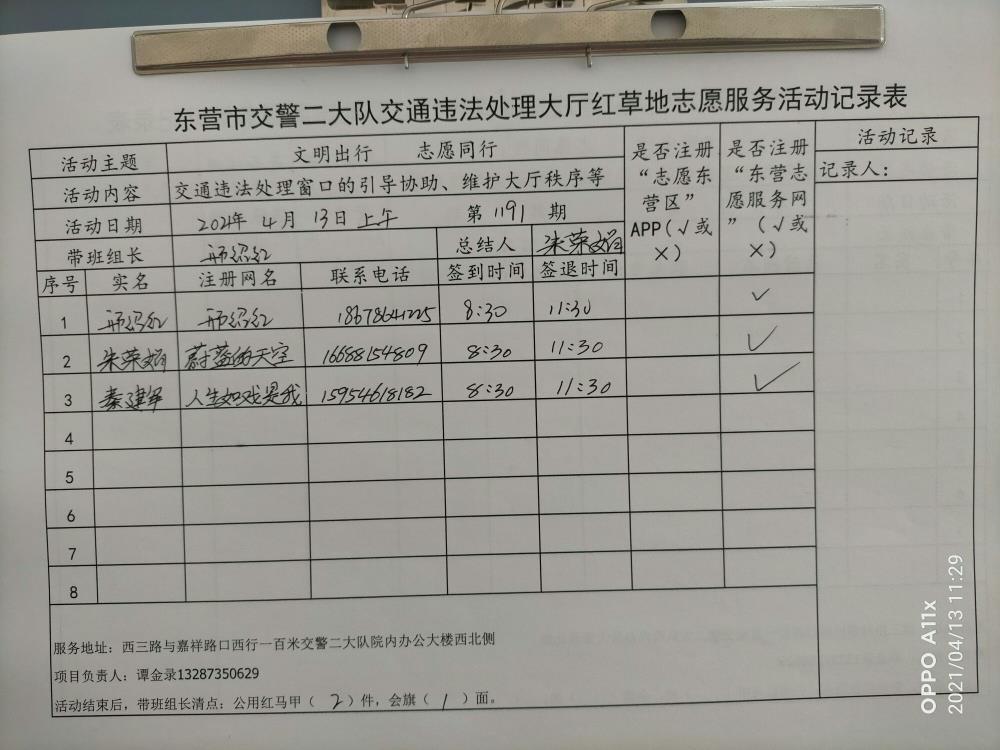 东营市交警二大队交通违法处理大厅红草地志愿服务活动记录表
活动主题 文明出行 志愿同行 是否注册“志愿东营区”APP(√或×) 是否注册“东营志愿服务网”(√或×) 活动记录
活动内容 交通违法处理窗口的引导协助、维护大厅秩序等 记录人:
活动日期 2021年 4月 13日 上午 第 1191 期
带班组长 总结人 朱荣娟
序号 实名 注册网名 联系电话 签到时间 签退时间
1 18678641225 8:30 11:30 ✓
2 朱荣娟 蔚蓝的天空 16688154809 8:30 11:30 ✓
3 秦建军 人生如戏是我 15954618182 8:30 11:30 ✓
4
5
6
7
8
服务地址:西三路与嘉祥路口西行一百米交警二大队院内办公大楼西北侧
项目负责人:谭金录13287350629
活动结束后,带班组长清点:公用红马甲( 2 )件,会旗( 1 )面。
OPPO A11x
2021/04/13 11:29